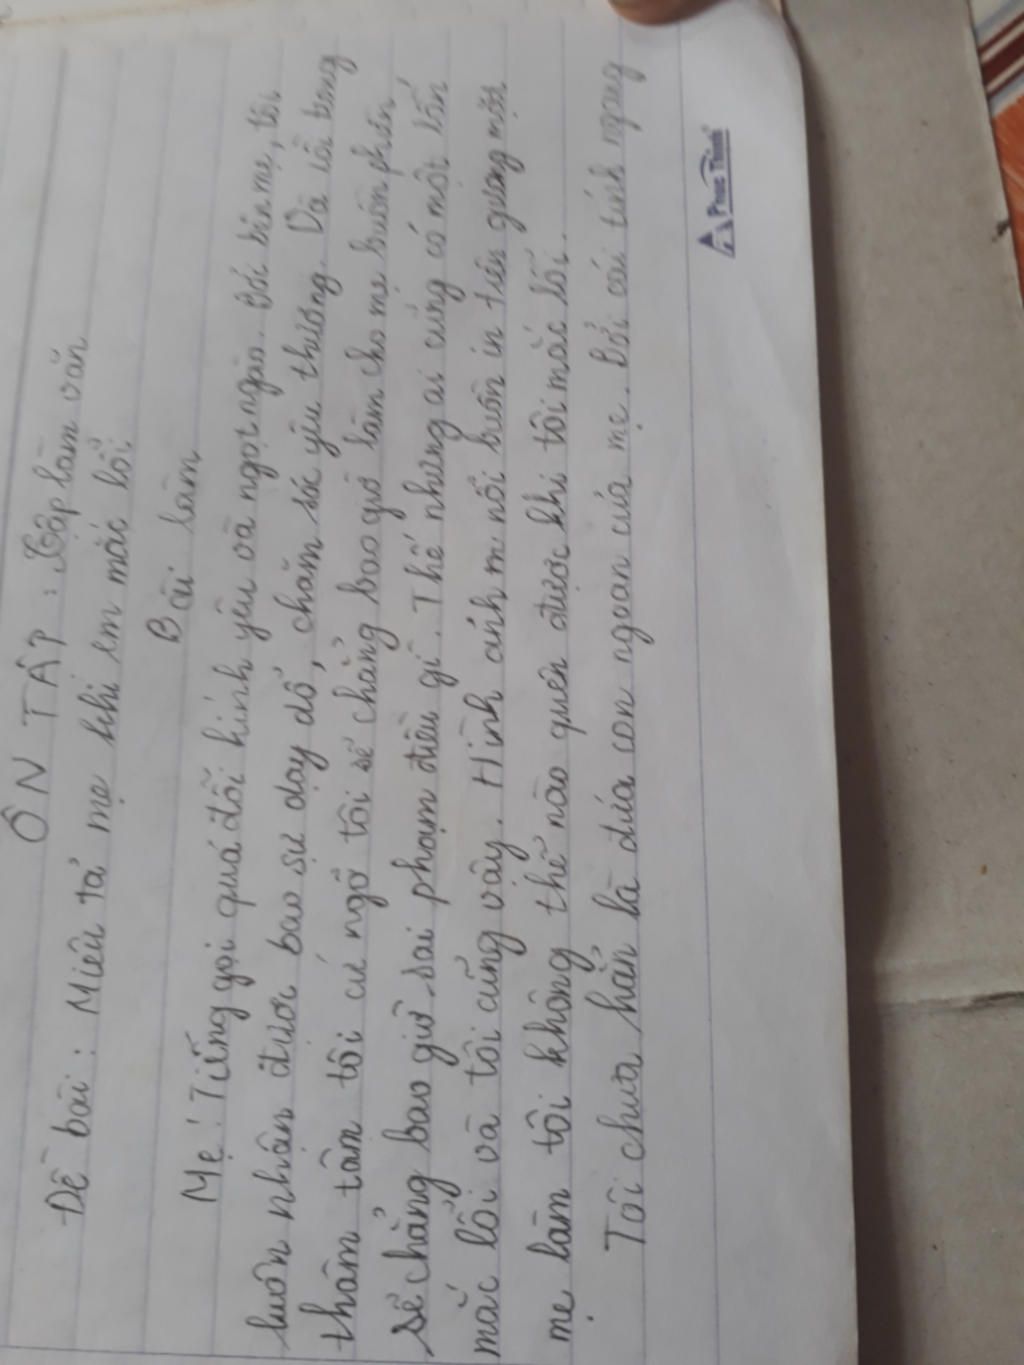 ÔN TẬP : Tập làm văn
Đề bài : Miêu tả mẹ khi em mắc lỗi
Bài làm
Mẹ ! Tiếng gọi quá đỗi kính yêu và ngọt ngào. Bởi bên mẹ, tôi
luôn nhận được bao sự dạy dỗ, chăm sóc yêu thương. Và tôi trong
thâm tâm tôi cứ ngỡ tôi sẽ chẳng bao giờ làm cho mẹ buồn phiền
sẽ chẳng bao giờ sai phạm điều gì. Thế nhưng ai cũng có một lần
mắc lỗi và tôi cũng vậy. Hình ảnh m nỗi buồn in trên gương mặt
mẹ làm tôi không thể nào quên được khi tôi mắc lỗi.
Tôi chưa hẳn là đứa con ngoan của mẹ. Bởi cái tính ngang
Phúc Thịnh